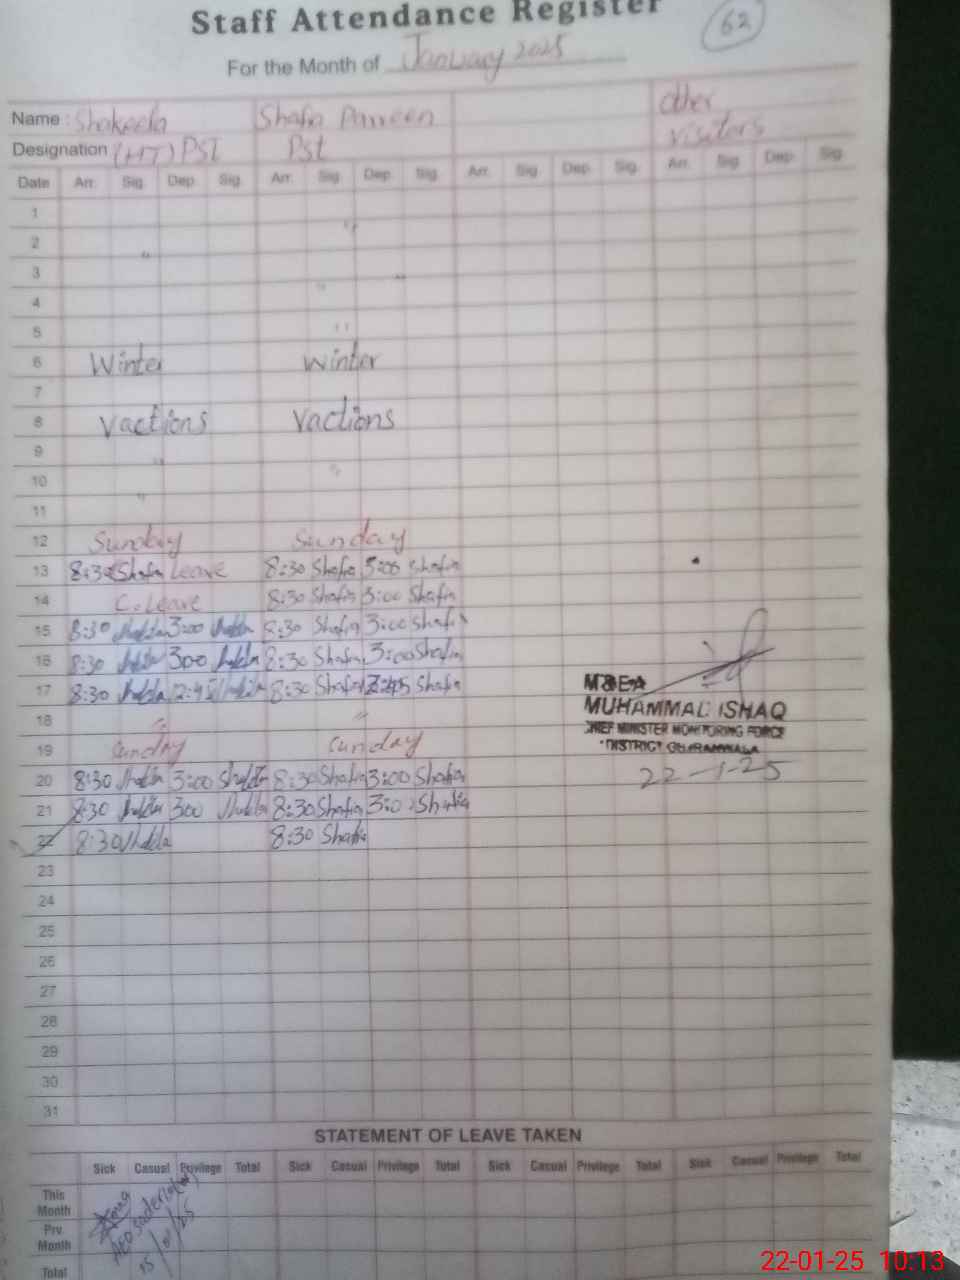 Staff Attendance Register
62
For the Month of January 2025
Name : Shakeela Shafia Parveen other visitors
Designation (HT) PST Pst
Date Arr. Sig. Dep. Sig. Arr. Sig. Dep. Sig. Arr. Sig. Dep. Sig. Arr. Sig. Dep. Sig.
1
2
3
4
5
6 Winter winter
7
8 Vactions vactions
9
10
11
12 Sunday Sunday
13 8:30 Leave 8:30 Shafia 3:00 Shafia
14 C. Leave 8:30 Shafia 3:00 Shafia
15 8:30 3:00 8:30 Shafia 3:00 Shafia
16 8:30 300 8:30 Shafia 3:00 Shafia
17 8:30 12:45 8:30 Shafia Shafia
18
19 Sunday Sunday
20 8:30 3:00 8:30 Shafia 3:00 Shafia
21 8:30 300 8:30 Shafia 3:0 Shafia
22 8:30 8:30 Shafia
M&EA
MUHAMMAD ISHAQ
CHIEF MINISTER MONITORING FORCE
DISTRICT GUJRANWALA
22-1-25
23
24
25
26
27
28
29
30
31
STATEMENT OF LEAVE TAKEN
Sick Casual Privilege Total Sick Casual Privilege Total Sick Casual Privilege Total Sick Casual Privilege Total
This Month
Prv. Month
Total
AEO
15/01/25
22-01-25 10:13